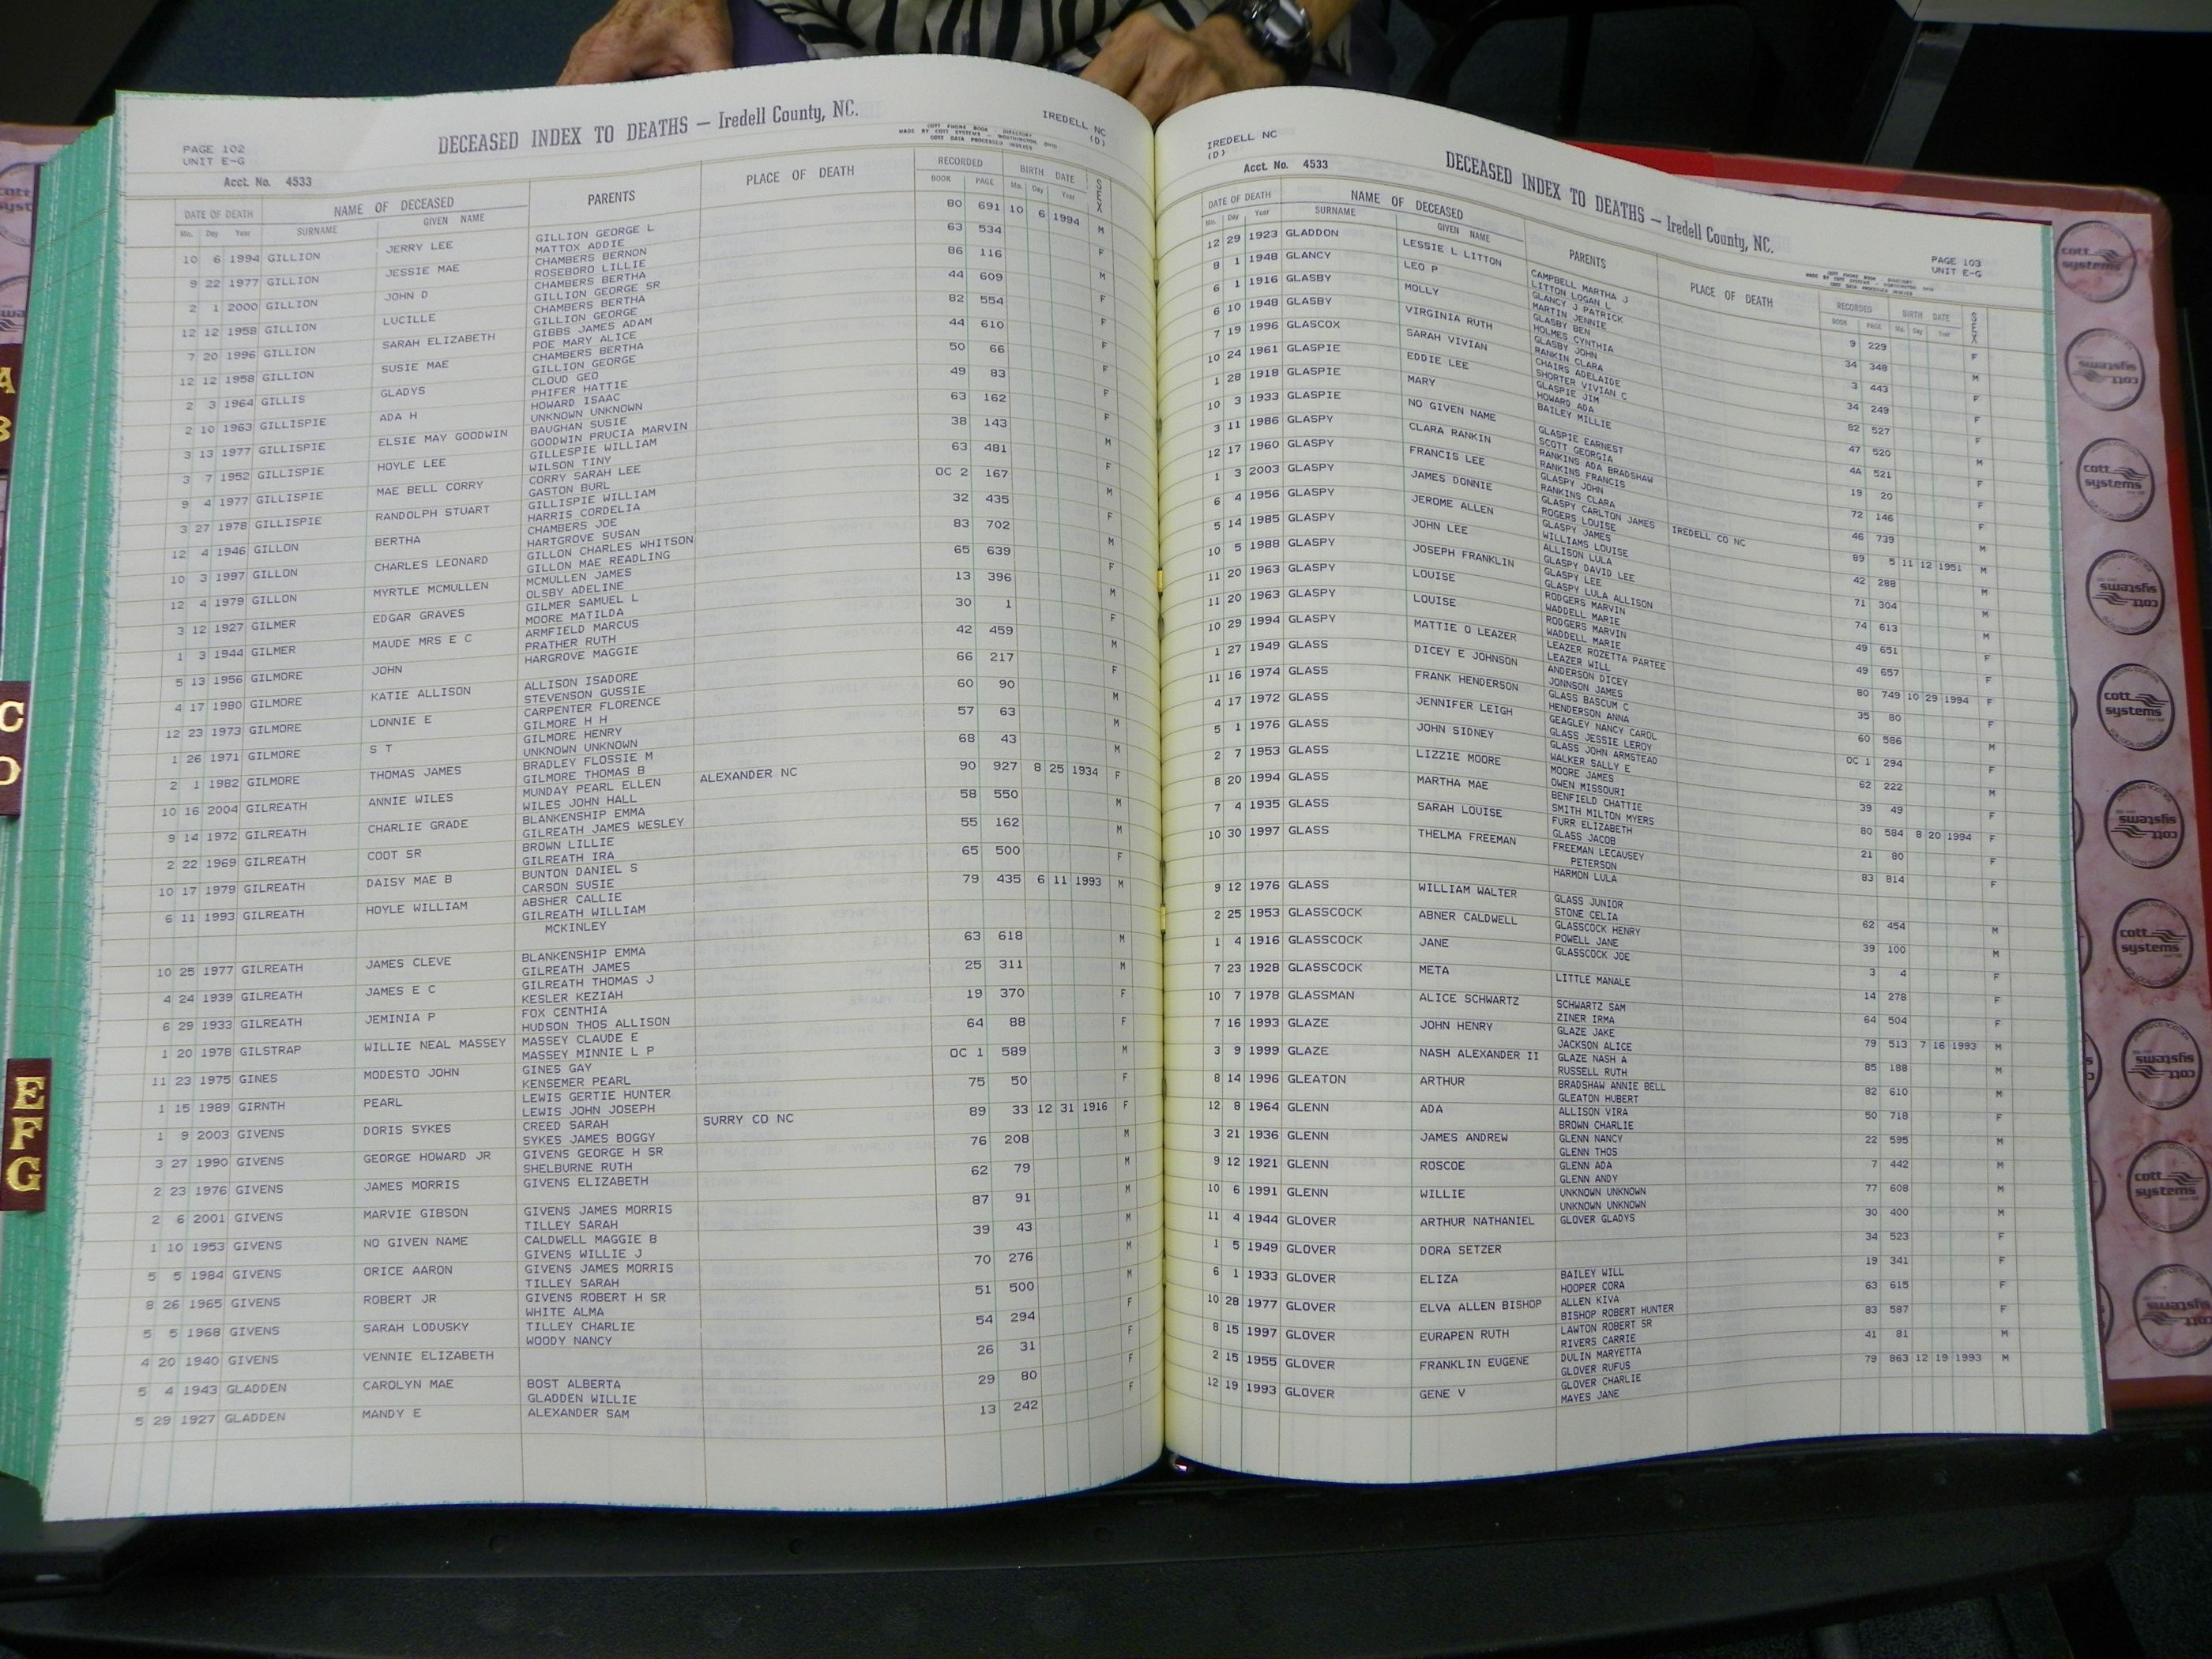 PAGE 102
UNIT E-G
DECEASED INDEX TO DEATHS — Iredell County, NC.
COTT PHONE BOOK - DIRECTORY
MADE BY COTT SYSTEMS - WORTHINGTON, OHIO
COTT DATA PROCESSED INDEXES
IREDELL NC
(D)
Acct. No. 4533
DATE OF DEATH NAME OF DECEASED PARENTS PLACE OF DEATH RECORDED BIRTH DATE SEX
Mo. Day Year SURNAME GIVEN NAME BOOK PAGE Mo. Day Year
10 6 1994 GILLION JERRY LEE GILLION GEORGE L 80 691 10 6 1994 M
MATTOX ADDIE
9 22 1977 GILLION JESSIE MAE CHAMBERS BERNON 63 534 F
ROSEBORO LILLIE
2 1 2000 GILLION JOHN D CHAMBERS BERTHA 86 116 M
GILLION GEORGE SR
12 12 1958 GILLION LUCILLE CHAMBERS BERTHA 44 609 F
GILLION GEORGE
7 20 1996 GILLION SARAH ELIZABETH GIBBS JAMES ADAM 82 554 F
POE MARY ALICE
12 12 1958 GILLION SUSIE MAE CHAMBERS BERTHA 44 610 F
GILLION GEORGE
2 3 1964 GILLIS GLADYS CLOUD GEO 50 66 F
PHIFER HATTIE
2 10 1963 GILLISPIE ADA H HOWARD ISAAC 49 83 F
UNKNOWN UNKNOWN
3 13 1977 GILLISPIE ELSIE MAY GOODWIN BAUGHAN SUSIE 63 162 F
GOODWIN PRUCIA MARVIN
3 7 1952 GILLISPIE HOYLE LEE GILLESPIE WILLIAM 38 143 M
WILSON TINY
9 4 1977 GILLISPIE MAE BELL CORRY CORRY SARAH LEE 63 481 F
GASTON BURL
3 27 1978 GILLISPIE RANDOLPH STUART GILLISPIE WILLIAM OC 2 167 M
HARRIS CORDELIA
12 4 1946 GILLON BERTHA CHAMBERS JOE 32 435 F
HARTGROVE SUSAN
10 3 1997 GILLON CHARLES LEONARD GILLON CHARLES WHITSON 83 702 M
GILLON MAE READLING
12 4 1979 GILLON MYRTLE MCMULLEN MCMULLEN JAMES 65 639 F
OLSBY ADELINE
3 12 1927 GILMER EDGAR GRAVES GILMER SAMUEL L 13 396 M
MOORE MATILDA
1 3 1944 GILMER MAUDE MRS E C ARMFIELD MARCUS 30 1 F
PRATHER RUTH
5 13 1956 GILMORE JOHN HARGROVE MAGGIE 42 459 M
4 17 1980 GILMORE KATIE ALLISON ALLISON ISADORE 66 217 F
STEVENSON GUSSIE
12 23 1973 GILMORE LONNIE E CARPENTER FLORENCE 60 90 M
GILMORE H H
1 26 1971 GILMORE S T GILMORE HENRY 57 63 M
UNKNOWN UNKNOWN
2 1 1982 GILMORE THOMAS JAMES BRADLEY FLOSSIE M 68 43 M
GILMORE THOMAS B
10 16 2004 GILREATH ANNIE WILES MUNDAY PEARL ELLEN ALEXANDER NC 90 927 8 25 1934 F
WILES JOHN HALL
9 14 1972 GILREATH CHARLIE GRADE BLANKENSHIP EMMA 58 550 M
GILREATH JAMES WESLEY
2 22 1969 GILREATH COOT SR BROWN LILLIE 55 162 M
GILREATH IRA
10 17 1979 GILREATH DAISY MAE B BUNTON DANIEL S 65 500 F
CARSON SUSIE
6 11 1993 GILREATH HOYLE WILLIAM ABSHER CALLIE 79 435 6 11 1993 M
GILREATH WILLIAM
MCKINLEY
10 25 1977 GILREATH JAMES CLEVE BLANKENSHIP EMMA 63 618 M
GILREATH JAMES
4 24 1939 GILREATH JAMES E C GILREATH THOMAS J 25 311 M
KESLER KEZIAH
6 29 1933 GILREATH JEMINIA P FOX CENTHIA 19 370 F
HUDSON THOS ALLISON
1 20 1978 GILSTRAP WILLIE NEAL MASSEY MASSEY CLAUDE E 64 88 F
MASSEY MINNIE L P
11 23 1975 GINES MODESTO JOHN GINES GAY OC 1 589 M
KENSEMER PEARL
1 15 1989 GIRNTH PEARL LEWIS GERTIE HUNTER 75 50 F
LEWIS JOHN JOSEPH
1 9 2003 GIVENS DORIS SYKES CREED SARAH SURRY CO NC 89 33 12 31 1916 F
SYKES JAMES BOGGY
3 27 1990 GIVENS GEORGE HOWARD JR GIVENS GEORGE H SR 76 208 M
SHELBURNE RUTH
2 23 1976 GIVENS JAMES MORRIS GIVENS ELIZABETH 62 79 M
2 6 2001 GIVENS MARVIE GIBSON GIVENS JAMES MORRIS 87 91 M
TILLEY SARAH
1 10 1953 GIVENS NO GIVEN NAME CALDWELL MAGGIE B 39 43 M
GIVENS WILLIE J
5 5 1984 GIVENS ORICE AARON GIVENS JAMES MORRIS 70 276 M
TILLEY SARAH
8 26 1965 GIVENS ROBERT JR GIVENS ROBERT H SR 51 500 M
WHITE ALMA
5 5 1968 GIVENS SARAH LODUSKY TILLEY CHARLIE 54 294 F
WOODY NANCY
4 20 1940 GIVENS VENNIE ELIZABETH 26 31 F
5 4 1943 GLADDEN CAROLYN MAE BOST ALBERTA 29 80 F
GLADDEN WILLIE
5 29 1927 GLADDEN MANDY E ALEXANDER SAM 13 242 F
IREDELL NC
(D)
DECEASED INDEX TO DEATHS — Iredell County, NC.
COTT PHONE BOOK - DIRECTORY
MADE BY COTT SYSTEMS - WORTHINGTON, OHIO
COTT DATA PROCESSED INDEXES
PAGE 103
UNIT E-G
Acct. No. 4533
DATE OF DEATH NAME OF DECEASED PARENTS PLACE OF DEATH RECORDED BIRTH DATE SEX
Mo. Day Year SURNAME GIVEN NAME BOOK PAGE Mo. Day Year
12 29 1923 GLADDON LESSIE L LITTON CAMPBELL MARTHA J 9 229 F
LITTON LOGAN L
8 1 1948 GLANCY LEO P GLANCY J PATRICK 34 348 M
MARTIN JENNIE
6 1 1916 GLASBY MOLLY GLASBY BEN 3 443 F
HOLMES CYNTHIA
6 10 1948 GLASBY VIRGINIA RUTH GLASBY JOHN 34 249 F
RANKIN CLARA
7 19 1996 GLASCOX SARAH VIVIAN CHAIRS ADELAIDE 82 527 F
SHORTER VIVIAN C
10 24 1961 GLASPIE EDDIE LEE GLASPIE JIM 47 520 M
HOWARD ADA
1 28 1918 GLASPIE MARY BAILEY MILLIE 4A 521 F
10 3 1933 GLASPIE NO GIVEN NAME GLASPIE EARNEST 19 20 F
SCOTT GEORGIA
3 11 1986 GLASPY CLARA RANKIN RANKINS ADA BRADSHAW 72 146 F
RANKINS FRANCIS
12 17 1960 GLASPY FRANCIS LEE GLASPY JOHN 46 739 M
RANKINS CLARA
1 3 2003 GLASPY JAMES DONNIE GLASPY CARLTON JAMES IREDELL CO NC 89 5 11 12 1951 M
ROGERS LOUISE
6 4 1956 GLASPY JEROME ALLEN GLASPY JAMES 42 288 M
WILLIAMS LOUISE
5 14 1985 GLASPY JOHN LEE ALLISON LULA 71 304 M
GLASPY DAVID LEE
10 5 1988 GLASPY JOSEPH FRANKLIN GLASPY LEE 74 613 M
GLASPY LULA ALLISON
11 20 1963 GLASPY LOUISE RODGERS MARVIN 49 651 F
WADDELL MARIE
11 20 1963 GLASPY LOUISE RODGERS MARVIN 49 657 F
WADDELL MARIE
10 29 1994 GLASPY MATTIE O LEAZER LEAZER ROZETTA PARTEE 80 749 10 29 1994 F
LEAZER WILL
1 27 1949 GLASS DICEY E JOHNSON ANDERSON DICEY 35 80 F
JONNSON JAMES
11 16 1974 GLASS FRANK HENDERSON GLASS BASCUM C 60 586 M
HENDERSON ANNA
4 17 1972 GLASS JENNIFER LEIGH GEAGLEY NANCY CAROL OC 1 294 F
GLASS JESSIE LEROY
5 1 1976 GLASS JOHN SIDNEY GLASS JOHN ARMSTEAD 62 222 M
WALKER SALLY E
2 7 1953 GLASS LIZZIE MOORE MOORE JAMES 39 49 F
OWEN MISSOURI
8 20 1994 GLASS MARTHA MAE BENFIELD CHATTIE 80 584 8 20 1994 F
SMITH MILTON MYERS
7 4 1935 GLASS SARAH LOUISE FURR ELIZABETH 21 80 F
GLASS JACOB
10 30 1997 GLASS THELMA FREEMAN FREEMAN LECAUSEY 83 814 F
PETERSON
HARMON LULA
9 12 1976 GLASS WILLIAM WALTER GLASS JUNIOR 62 454 M
STONE CELIA
2 25 1953 GLASSCOCK ABNER CALDWELL GLASSCOCK HENRY 39 100 M
POWELL JANE
1 4 1916 GLASSCOCK JANE GLASSCOCK JOE 3 4 F
7 23 1928 GLASSCOCK META LITTLE MANALE 14 278 F
10 7 1978 GLASSMAN ALICE SCHWARTZ SCHWARTZ SAM 64 504 F
ZINER IRMA
7 16 1993 GLAZE JOHN HENRY GLAZE JAKE 79 513 7 16 1993 M
JACKSON ALICE
3 9 1999 GLAZE NASH ALEXANDER II GLAZE NASH A 85 188 M
RUSSELL RUTH
8 14 1996 GLEATON ARTHUR BRADSHAW ANNIE BELL 82 610 M
GLEATON HUBERT
12 8 1964 GLENN ADA ALLISON VIRA 50 718 F
BROWN CHARLIE
3 21 1936 GLENN JAMES ANDREW GLENN NANCY 22 595 M
GLENN THOS
9 12 1921 GLENN ROSCOE GLENN ADA 7 442 M
GLENN ANDY
10 6 1991 GLENN WILLIE UNKNOWN UNKNOWN 77 608 M
UNKNOWN UNKNOWN
11 4 1944 GLOVER ARTHUR NATHANIEL GLOVER GLADYS 30 400 M
1 5 1949 GLOVER DORA SETZER 34 523 F
6 1 1933 GLOVER ELIZA BAILEY WILL 19 341 F
HOOPER CORA
10 28 1977 GLOVER ELVA ALLEN BISHOP ALLEN KIVA 63 615 F
BISHOP ROBERT HUNTER
8 15 1997 GLOVER EURAPEN RUTH LAWTON ROBERT SR 83 587 F
RIVERS CARRIE
2 15 1955 GLOVER FRANKLIN EUGENE DULIN MARYETTA 41 81 M
GLOVER RUFUS
12 19 1993 GLOVER GENE V GLOVER CHARLIE 79 863 12 19 1993 M
MAYES JANE
A
B
C
D
E
F
G
cott
systems